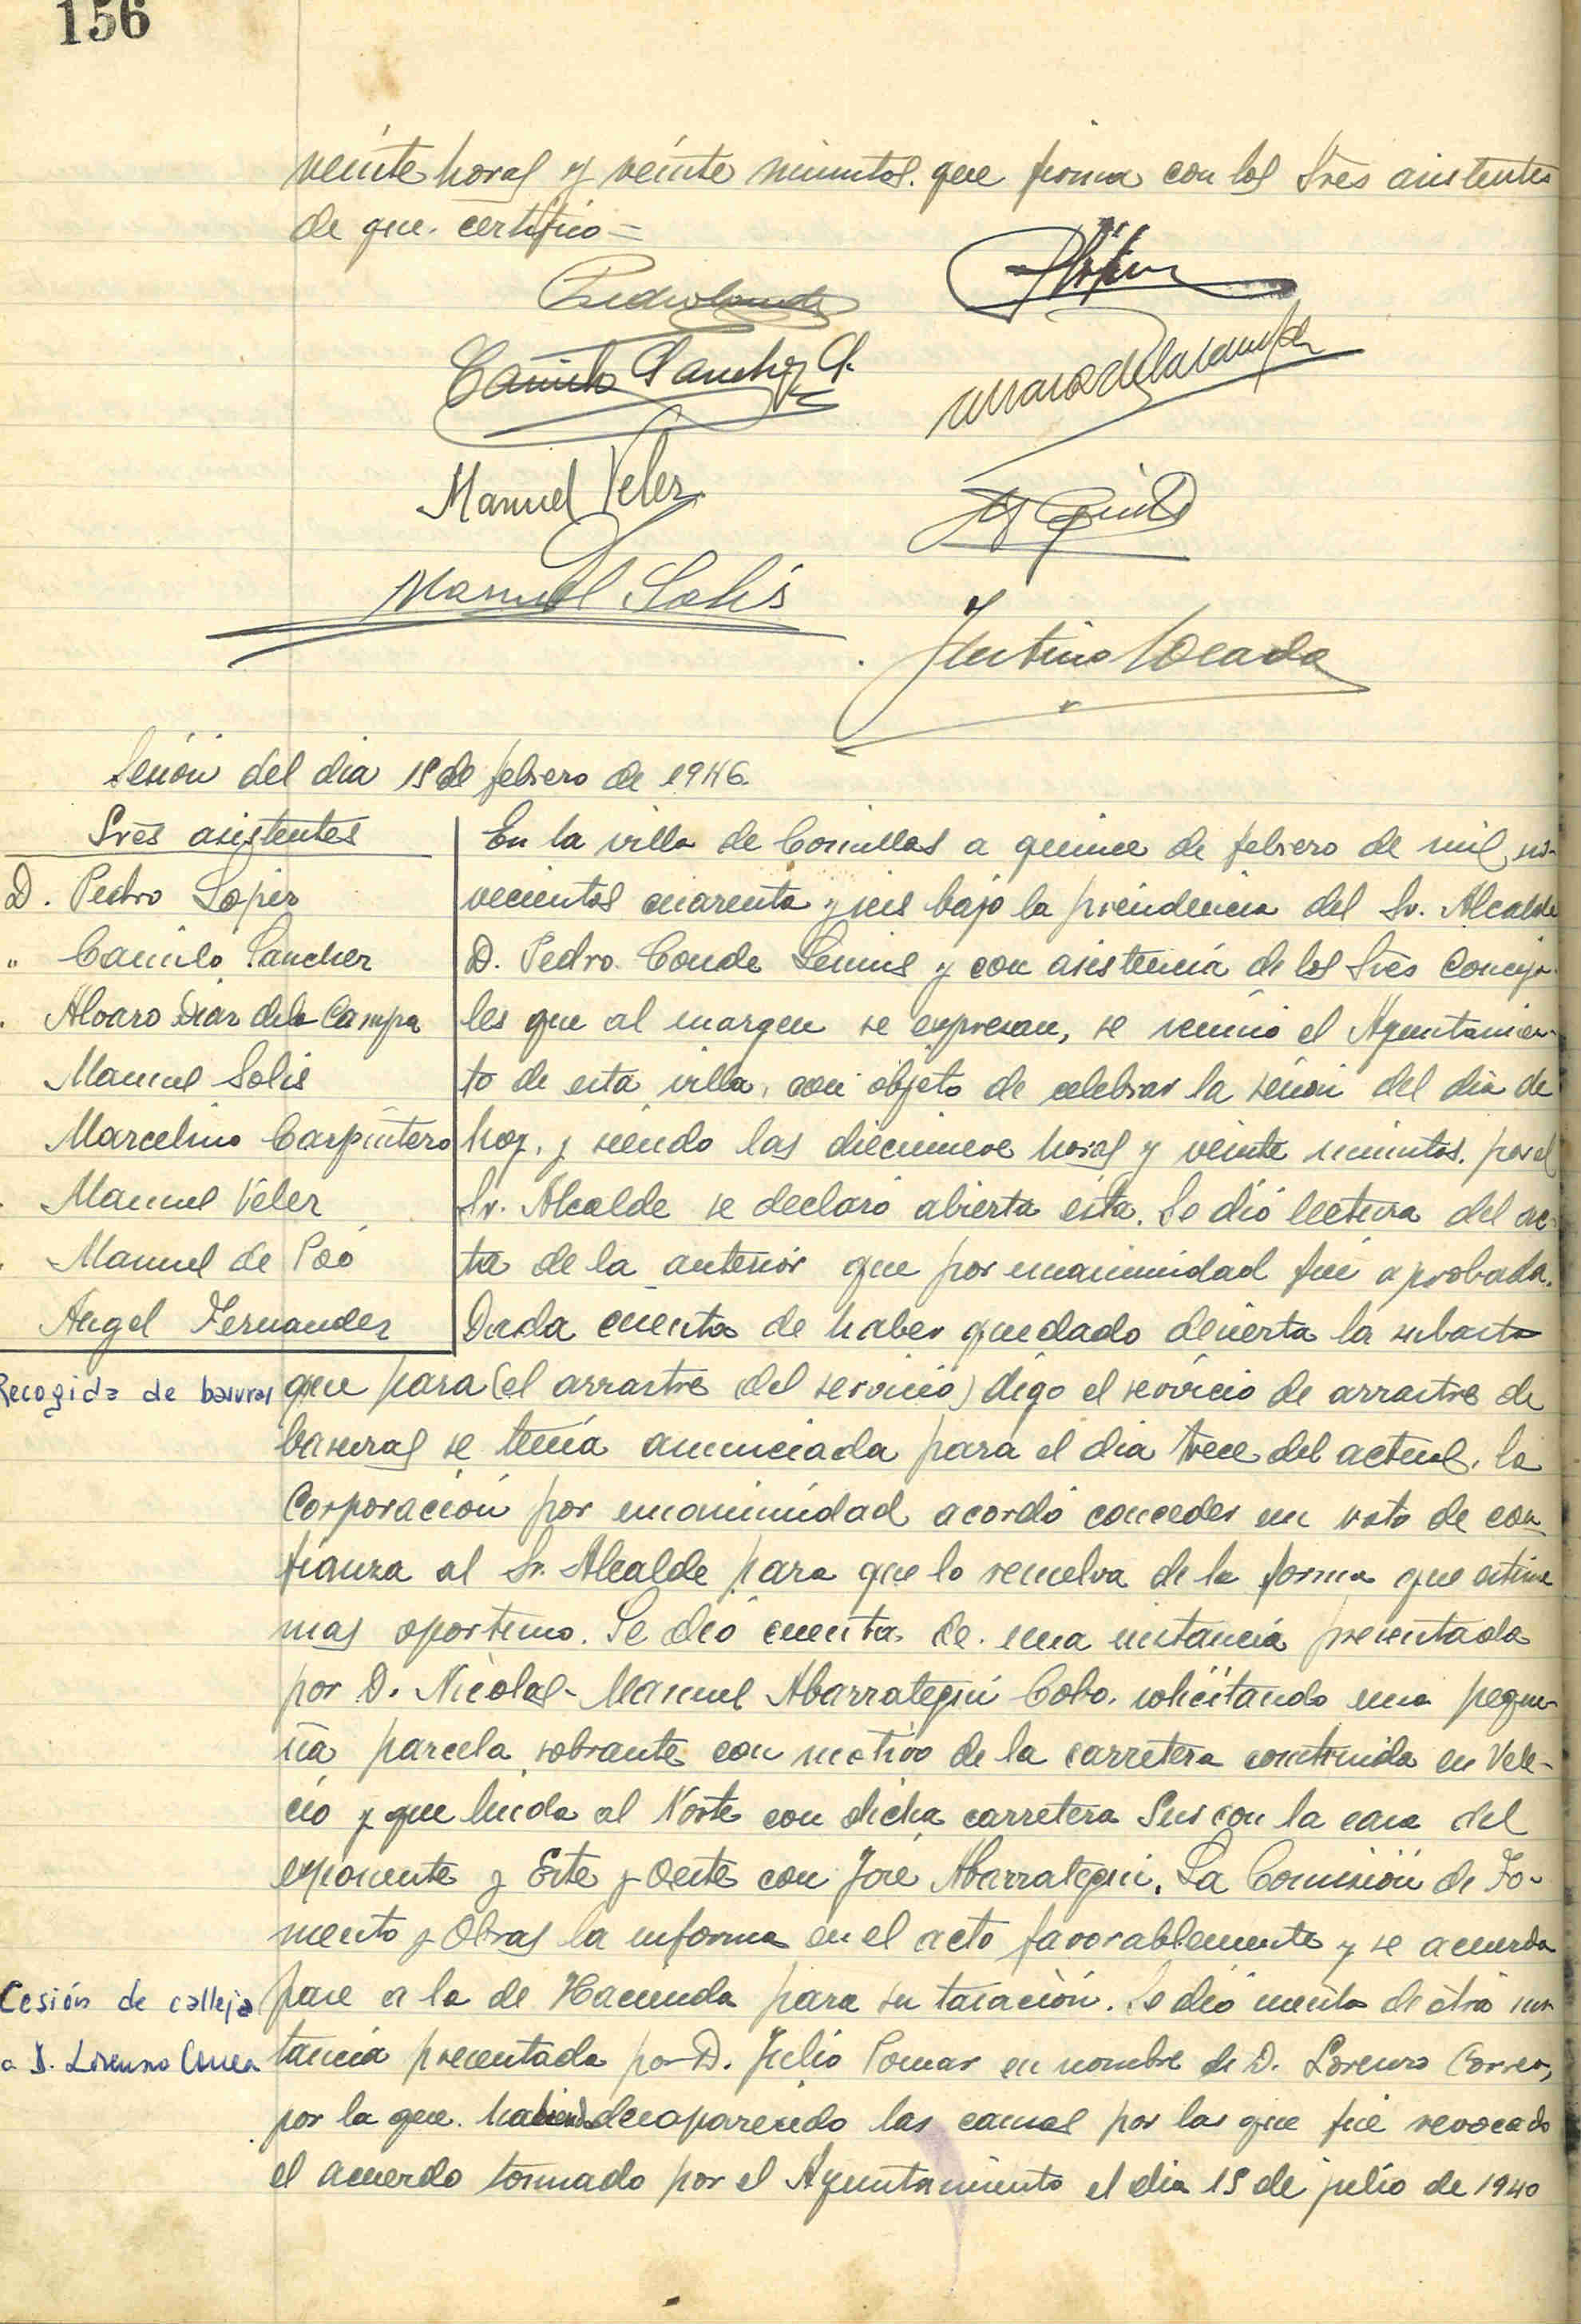 156
veinte horas y veinte minutos. que firma con los Sres asistentes
de que. certifico =
Pedro Conde
Camilo Sanchez
Manuel Velez
Manuel Solis
Sesión del dia 15 de febrero de 1946.
Sres asistentes
D. Pedro Lopez
" Camilo Sanchez
Alvaro Diaz de la Campa
Manuel Solis
Marcelino Carpintero
Manuel Velez
Manuel de Poó
Angel Fernandez
En la villa de Comillas a quince de febrero de mil no-
vecientos cuarenta y seis bajo la presidencia del Sr. Alcalde
D. Pedro Conde y con asistencia de los Sres Conceja-
les que al margen se expresan, se reunió el Ayuntamien-
to de esta villa, con objeto de celebrar la sesión del dia de
hoy, y siendo las diecinueve horas y veinte minutos. por el
Sr. Alcalde se declaró abierta esta. Se dió lectura del ac-
ta de la anterior que por unanimidad fué aprobada.
Dada cuenta de haber quedado desierta la subasta
Recogida de basuras
que para (el arrastre del servicio) digo el servicio de arrastre de
basuras se tenía anunciada para el dia trece del actual, la
Corporación por unanimidad acordó conceder un voto de con-
fianza al Sr. Alcalde para que lo resuelva de la forma que estime
mas oportuno. Se dió cuenta de una instancia presentada
por D. Nicolas-Manuel Abarrategui Cobo. solicitando una peque-
ña parcela sobrante con motivo de la carretera construida en Vele-
cio y que linda al Norte con dicha carretera Sur con la casa del
exponente y Este y Oeste con José Abarrategui. La Comisión de Fo-
mento y Obras la informa en el acto favorablemente y se acuerda
Cesión de calleja
a D. Lorenzo Correa
pase a la de Hacienda para su tasación. Se dió cuenta de otra ins-
tancia presentada por D. Julio Pomar en nombre de D. Lorenzo Correa,
por la que. habiendo desaparecido las causas por las que fué revocado
el acuerdo tomado por el Ayuntamiento el dia 15 de julio de 1940